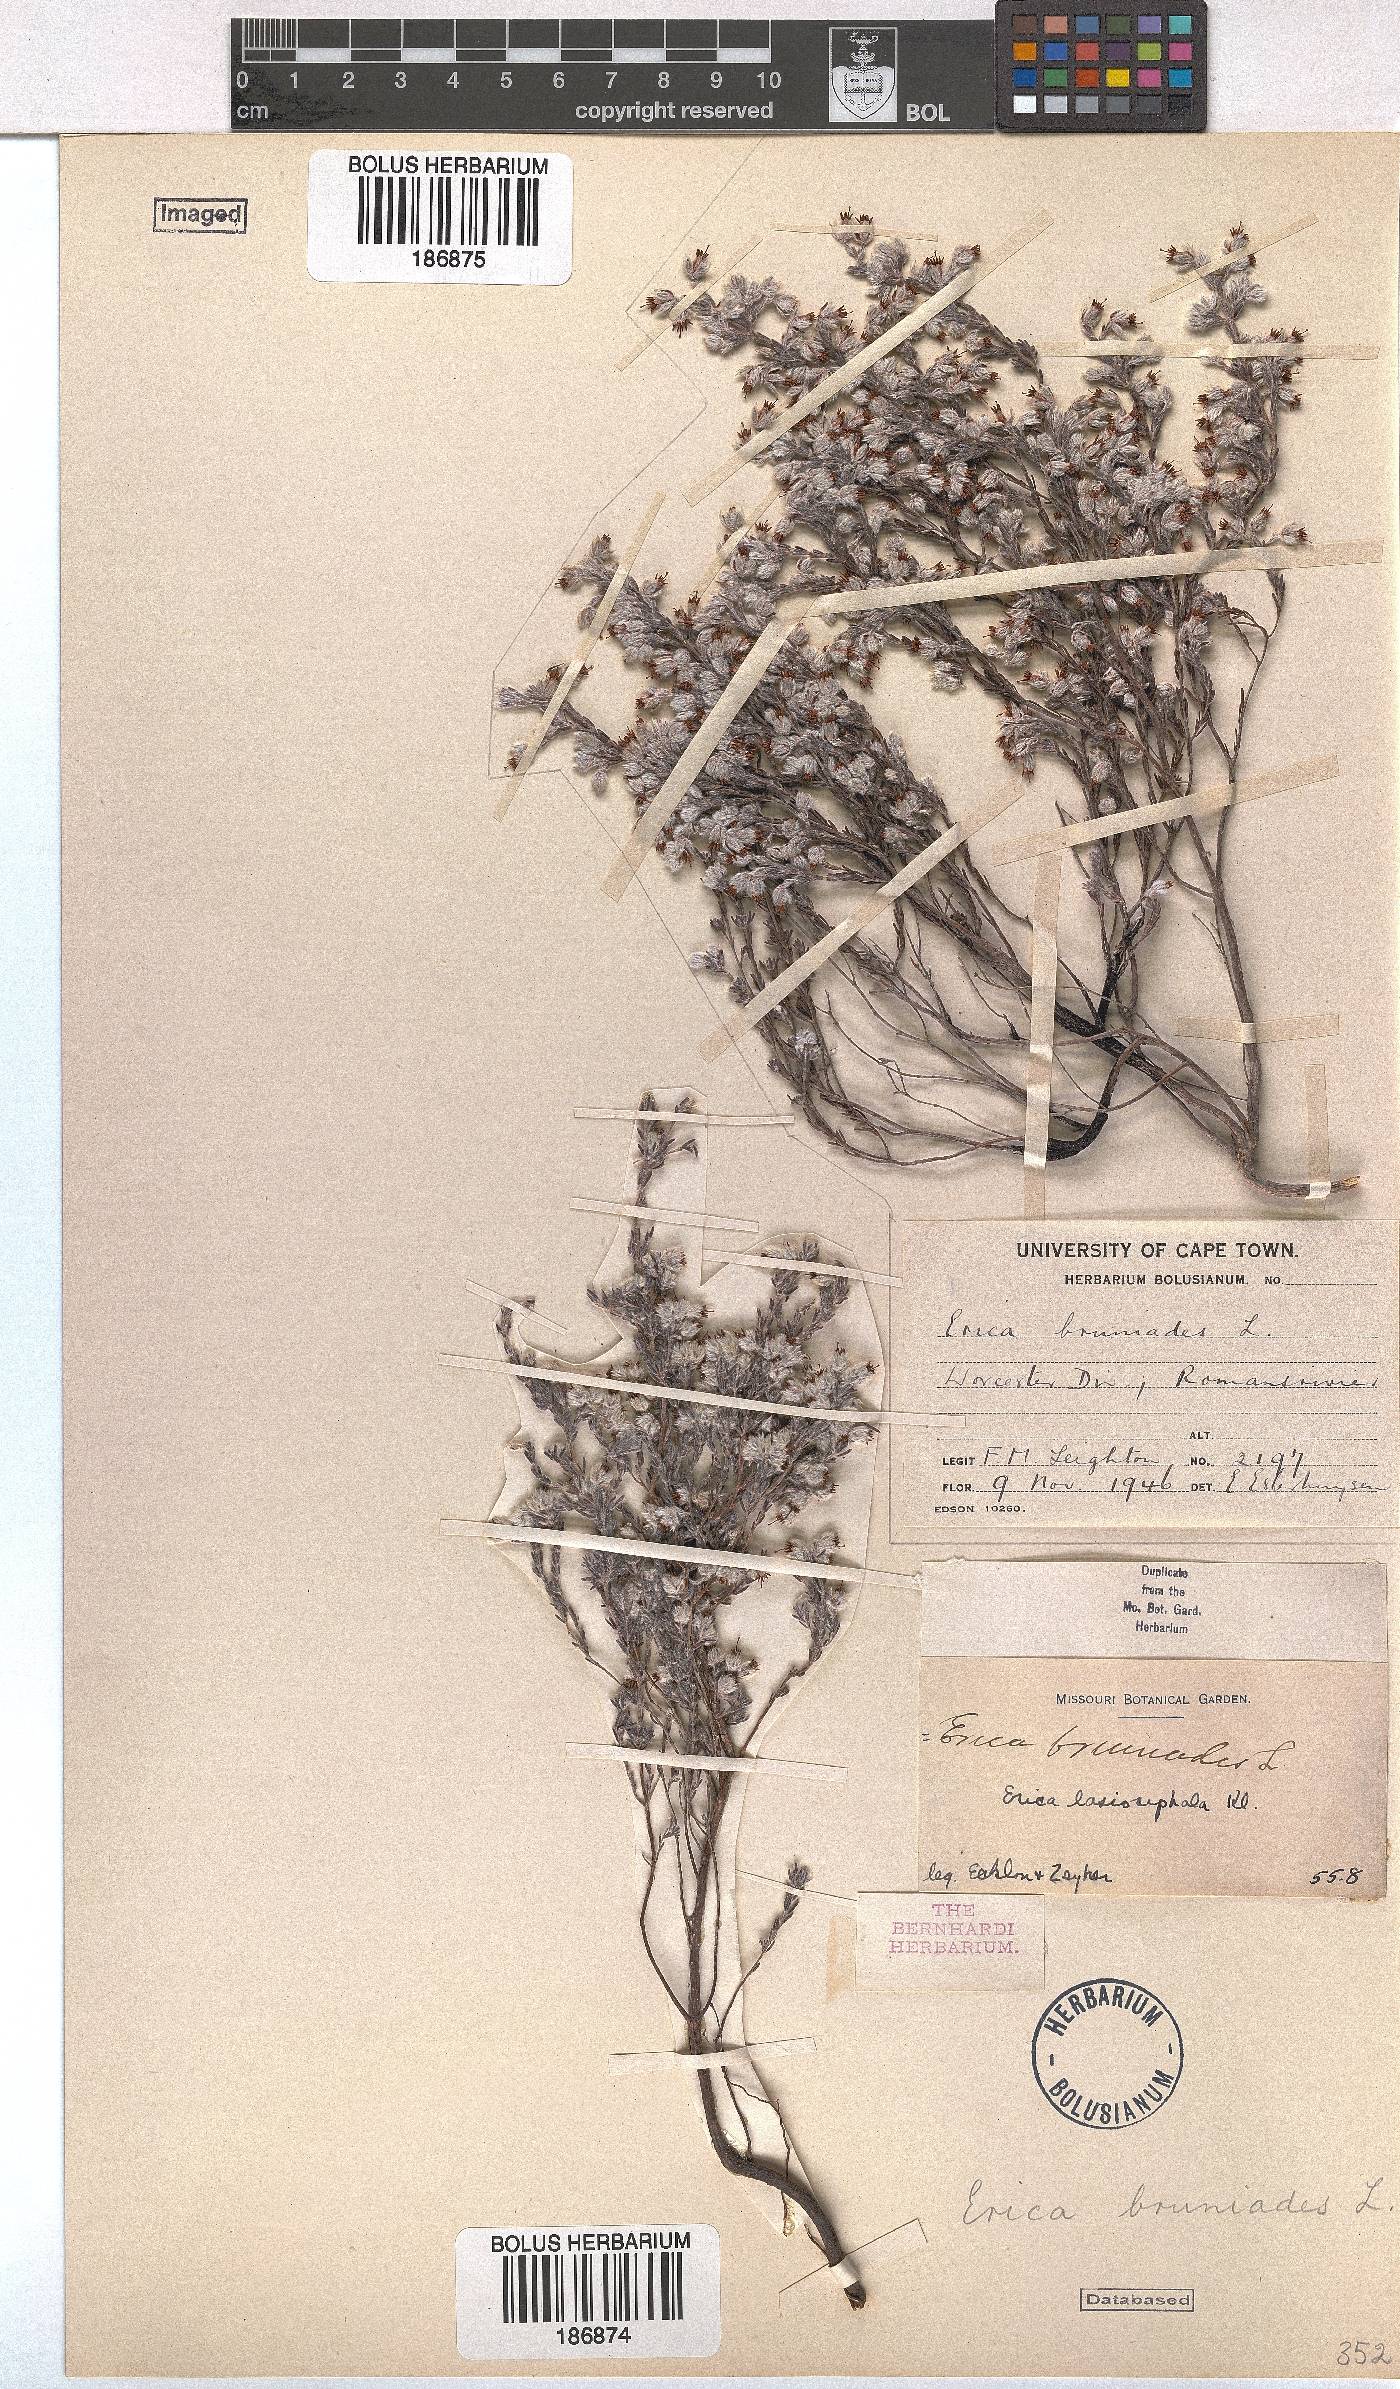 0 1 2 3 4 5 6 7 8 9 10
cm copyright reserved BOL
BOLUS HERBARIUM
186875
Imaged
UNIVERSITY OF CAPE TOWN.
HERBARIUM BOLUSIANUM. NO
Erica bruniades L.
Worcester Div; Romansrivier
ALT.
LEGIT F M Leighton NO. 2197
FLOR. 9 Nov. 1946 DET. E Esterhuysen
EDSON 10260.
Duplicate
from the
Mo. Bot. Gard.
Herbarium
MISSOURI BOTANICAL GARDEN.
= Erica bruniades L
Erica lasiocephala Kl.
leg. Ecklon & Zeyher 55.8
THE
BERNHARDI
HERBARIUM.
HERBARIUM
- BOLUSIANUM -
Erica bruniades L.
BOLUS HERBARIUM
186874
Databased
352